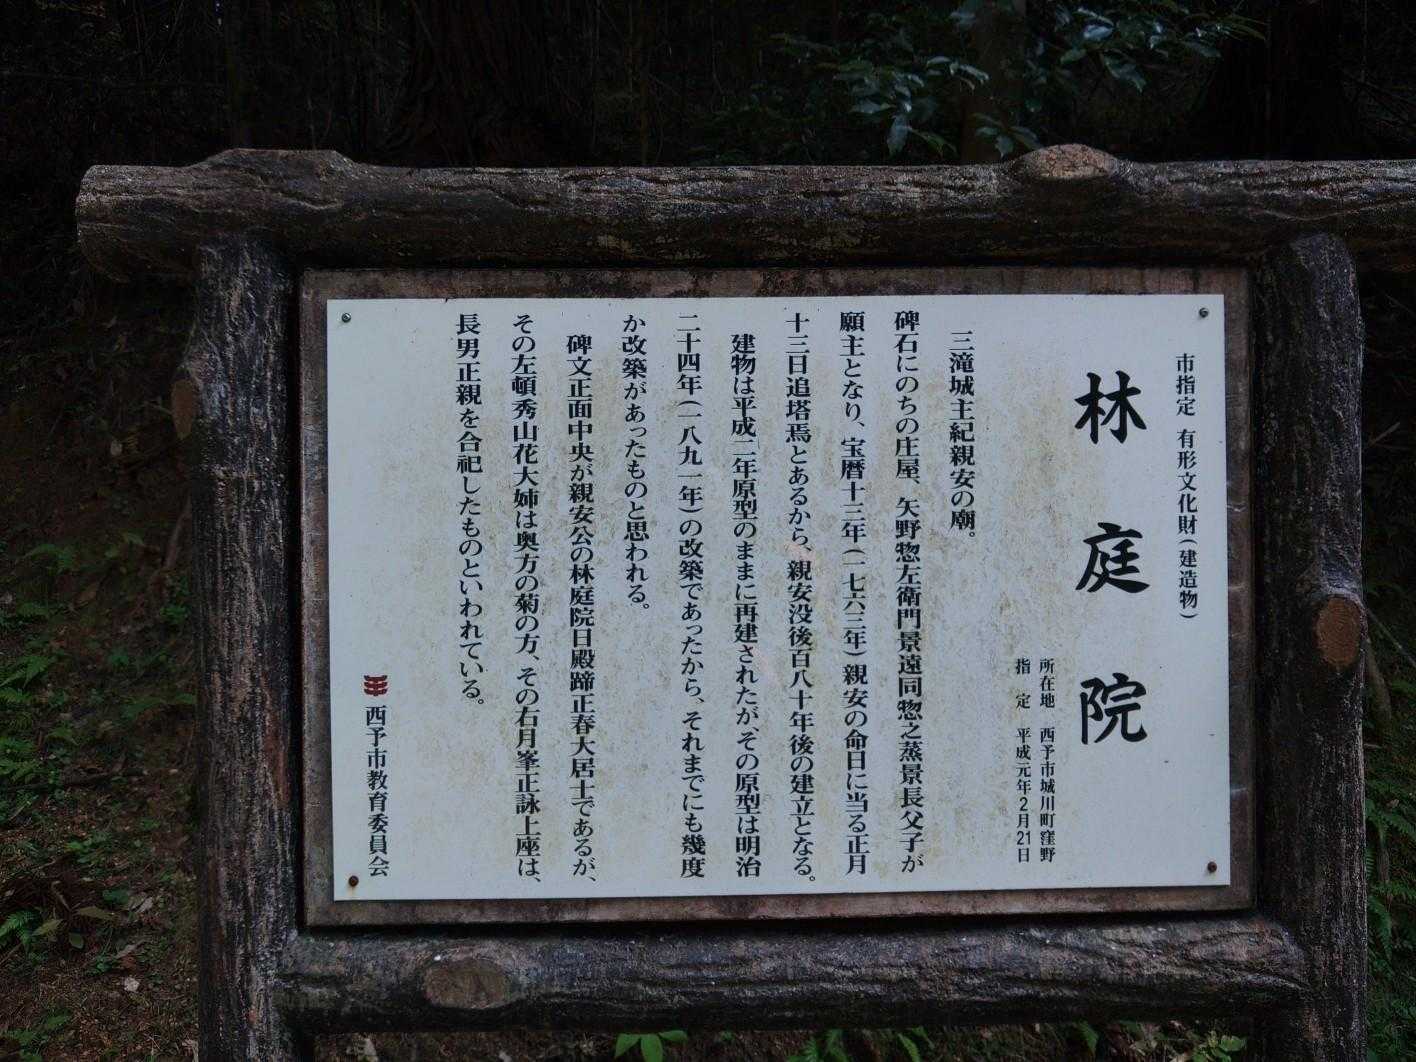 市指定 有形文化財(建造物)
林庭院
所在地 西予市城川町窪野
指定 平成元年2月21日
三滝城主紀親安の廟。
碑石にのちの庄屋、矢野惣左衛門景遠同惣之蒸景長父子が
願主となり、宝暦十三年(一七六三年)親安の命日に当る正月
十三日追塔焉とあるから、親安没後百八十年後の建立となる。
建物は平成二年原型のままに再建されたが、その原型は明治
二十四年(一八九一年)の改築であったから、それまでにも幾度
か改築があったものと思われる。
碑文正面中央が親安公の林庭院日殿蹄正春大居士であるが、
その左頓秀山花大姉は奥方の菊の方、その右月峯正詠上座は、
長男正親を合祀したものといわれている。
西予市教育委員会